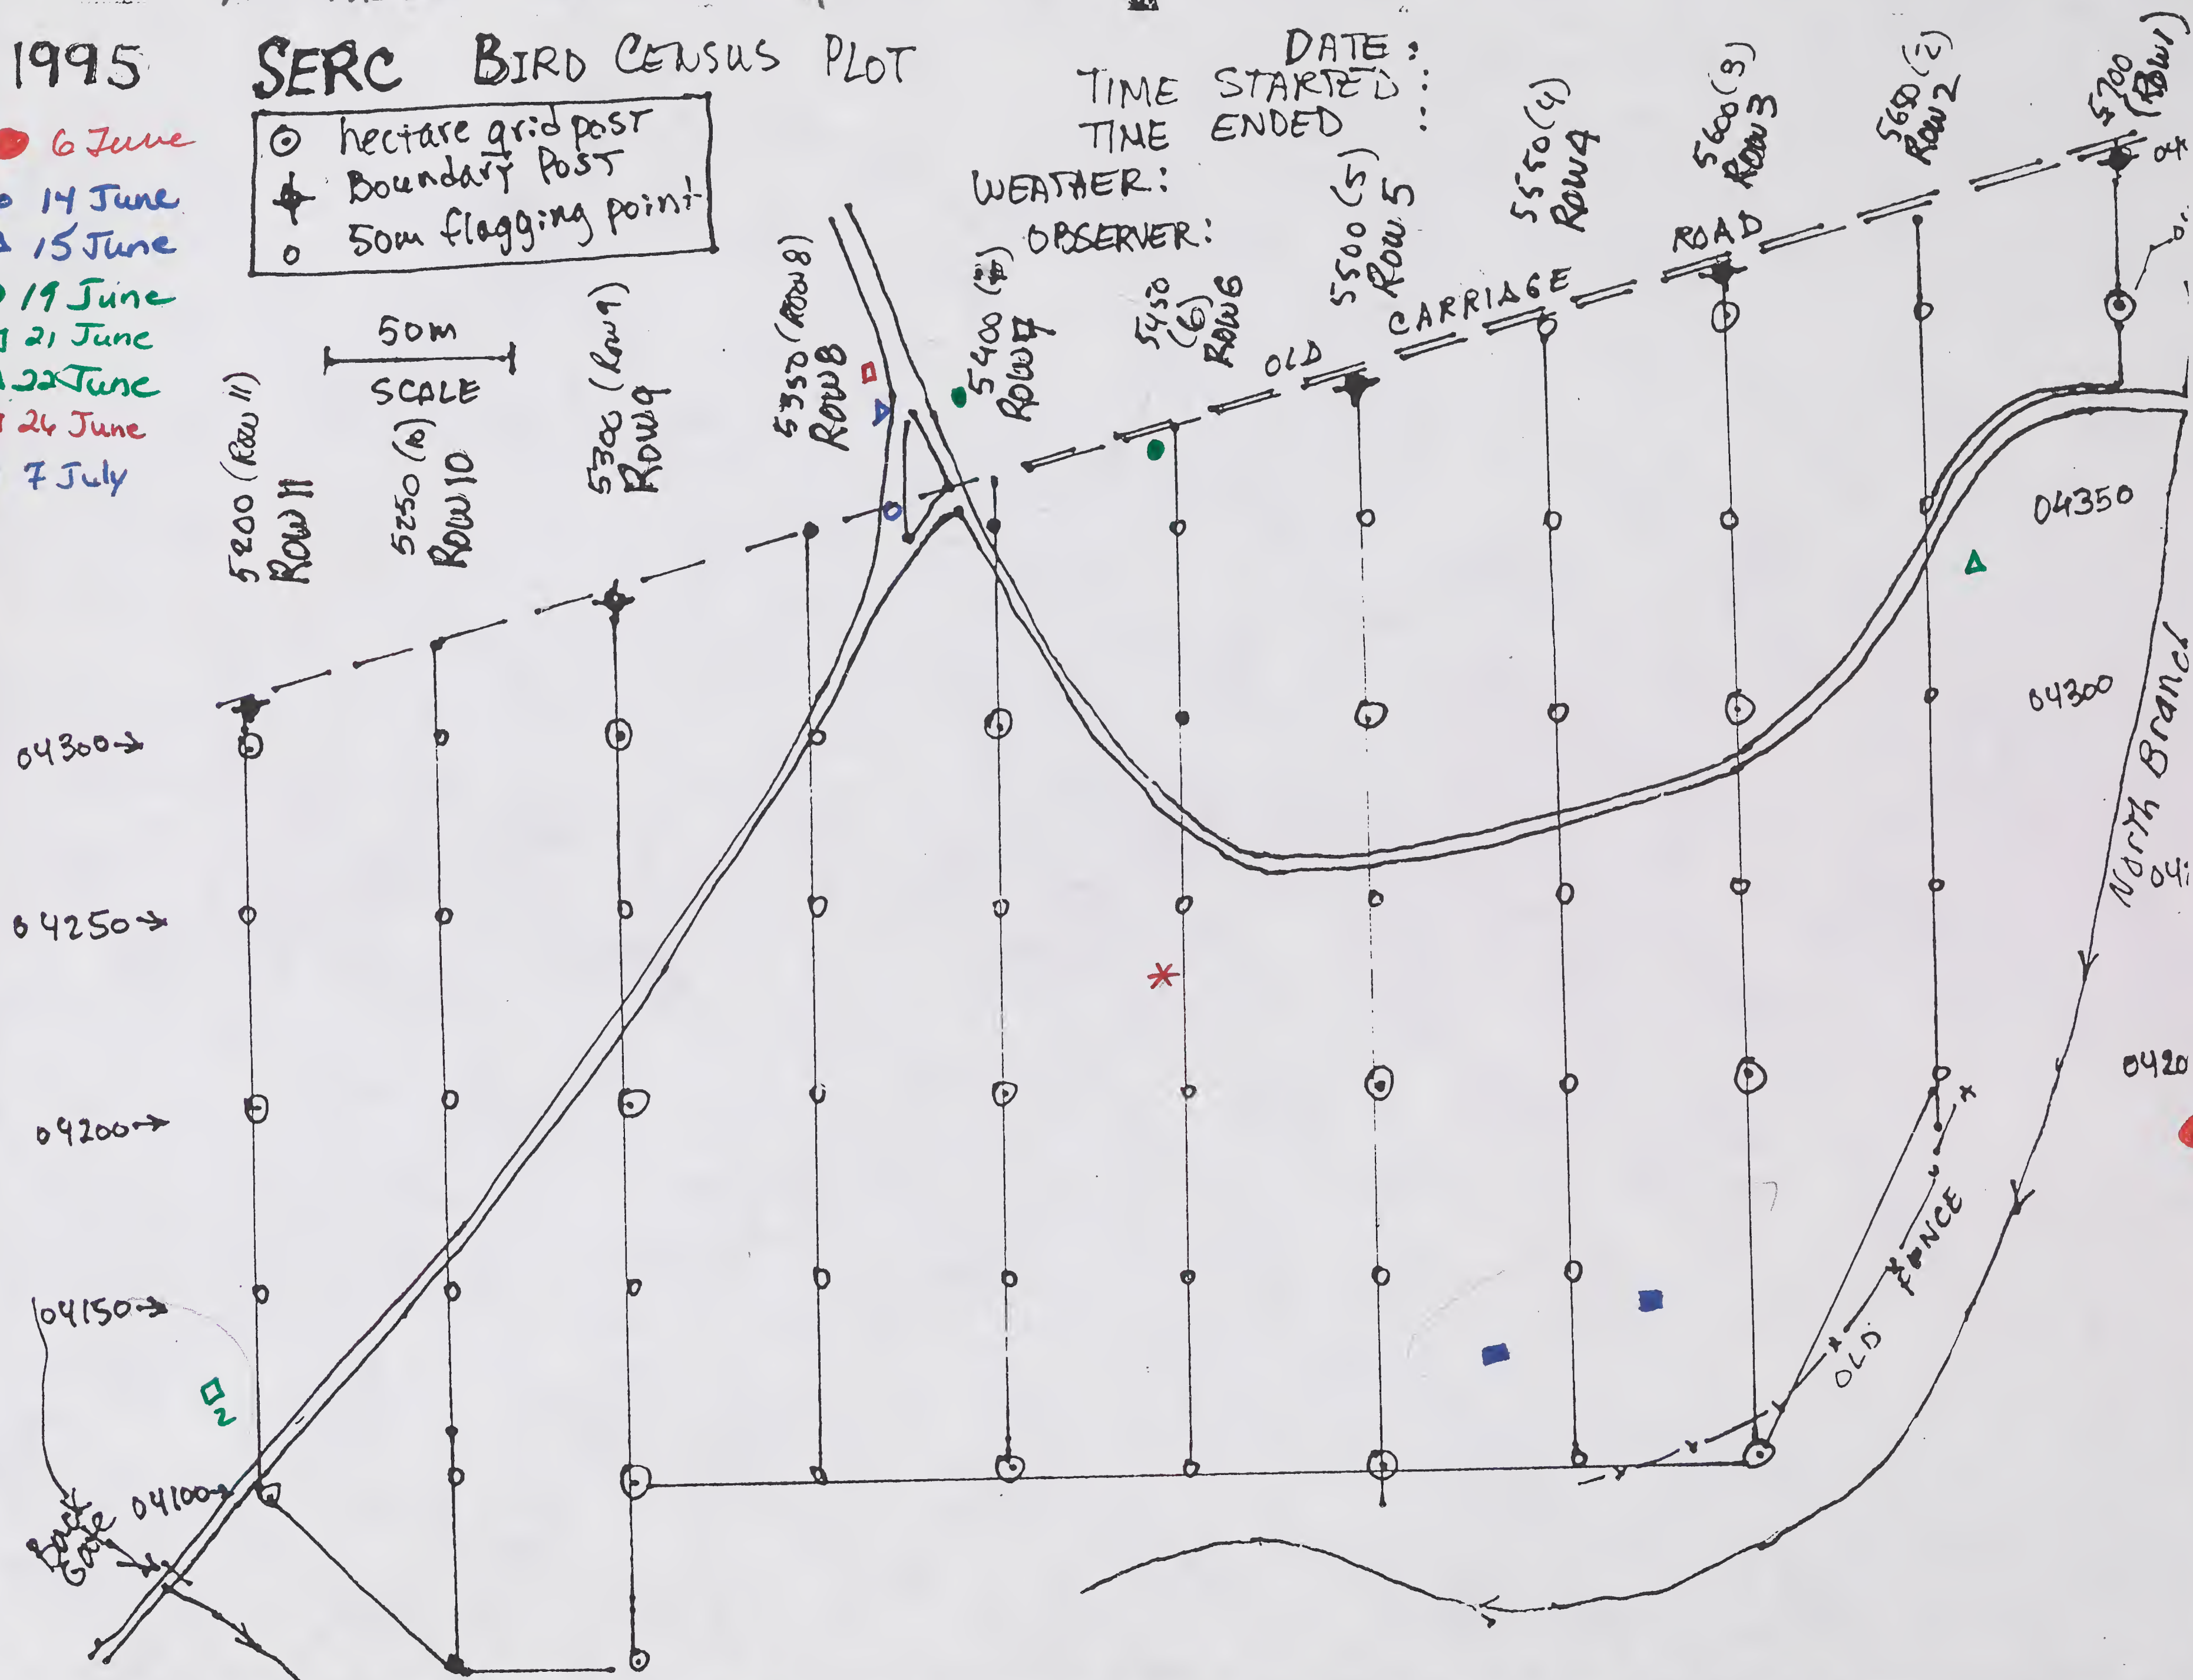 1995
SERC BIRD CENSUS PLOT
DATE:
TIME STARTED:
TIME ENDED :
WEATHER:
OBSERVER:
6 June
14 June
15 June
19 June
21 June
22 June
26 June
7 July
hectare grid post
Boundary Post
50m flagging point
50m
SCALE
5200 (Row 11)
ROW 11
5250 (10)
ROW 10
5300 (Row 9)
ROW 9
5350 (Row 8)
ROW 8
5400
ROW 7
5450
(6)
ROW 6
5500 (5)
ROW 5
5550 (4)
ROW 4
5600 (3)
ROW 3
5650 (2)
ROW 2
5700
(ROW 1)
OLD CARRIAGE ROAD
04350
04300
0420
North Branch
04300→
04250→
04200→
04150→
04100→
2
Back
Gate
OLD FENCE